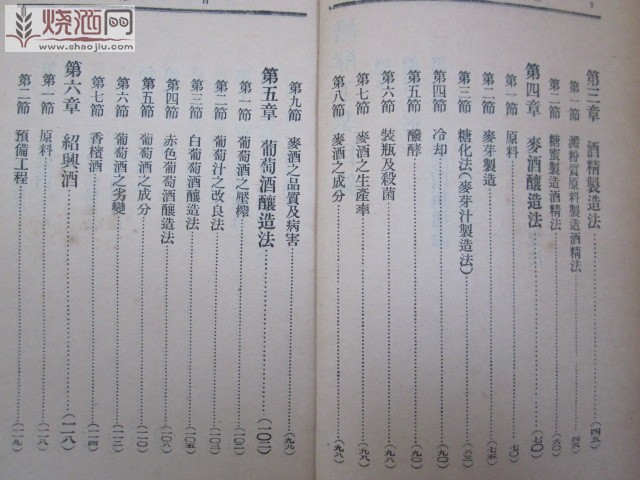 烧酒网
www.shaojiu.com
第三章 酒精製造法……(四五)
第一節 澱粉質原料製造酒精法……(四六)
第二節 糖蜜製造酒精法……(六〇)
第四章 麥酒釀造法……(七〇)
第一節 原料……(七〇)
第二節 麥芽製造……(七五)
第三節 糖化法(麥芽汁製造法)……(八三)
第四節 冷却……(九〇)
第五節 醱酵……(九〇)
第六節 裝瓶及殺菌……
第七節 麥酒之生產率……(九八)
第八節 麥酒之成分……(九八)
第九節 麥酒之品質及病害……(九九)
第五章 葡萄酒釀造法……
第一節 葡萄酒之壓榨……
第二節 葡萄汁之改良法……
第三節 白葡萄酒釀造法……(一〇五)
第四節 赤色葡萄酒釀造法……(一〇八)
第五節 葡萄酒之成分……
第六節 葡萄酒之劣變……(一一三)
第七節 香檳酒……(一一四)
第六章 紹興酒……(一一八)
第一節 原料……(一一八)
第二節 預備工程……(一一九)